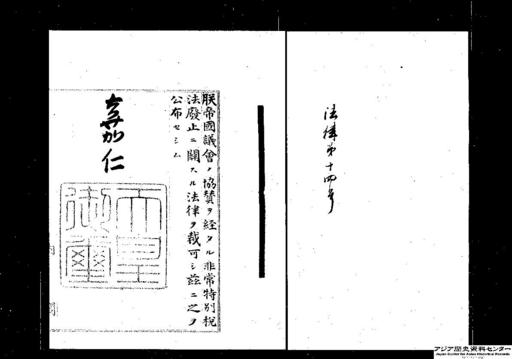 法律第十四号
朕帝國議會ノ協贊ヲ經タル非常特別稅
法廢止ニ關スル法律ヲ裁可シ茲ニ之ヲ
公布セシム
嘉仁
天皇御璽
アジア歴史資料センター
Japan Center for Asian Historical Records